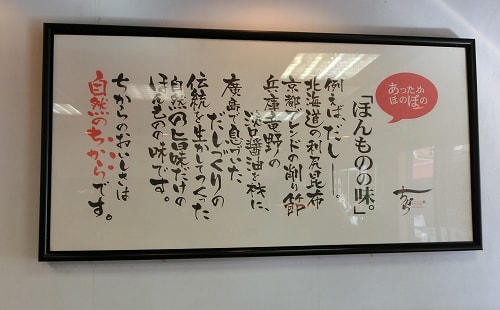 あったか
ほのぼの
「ほんものの味。」
例えば、だし――。
北海道の利尻昆布
京都ブレンドの削り節
兵庫竜野の
淡口醤油を核に、
廣島で息づいた
だしづくりの
伝統を生かしてつくった
自然の旨味だけの
ほんものの味です。
ちからのおいしさは
自然のちからです。
ちから